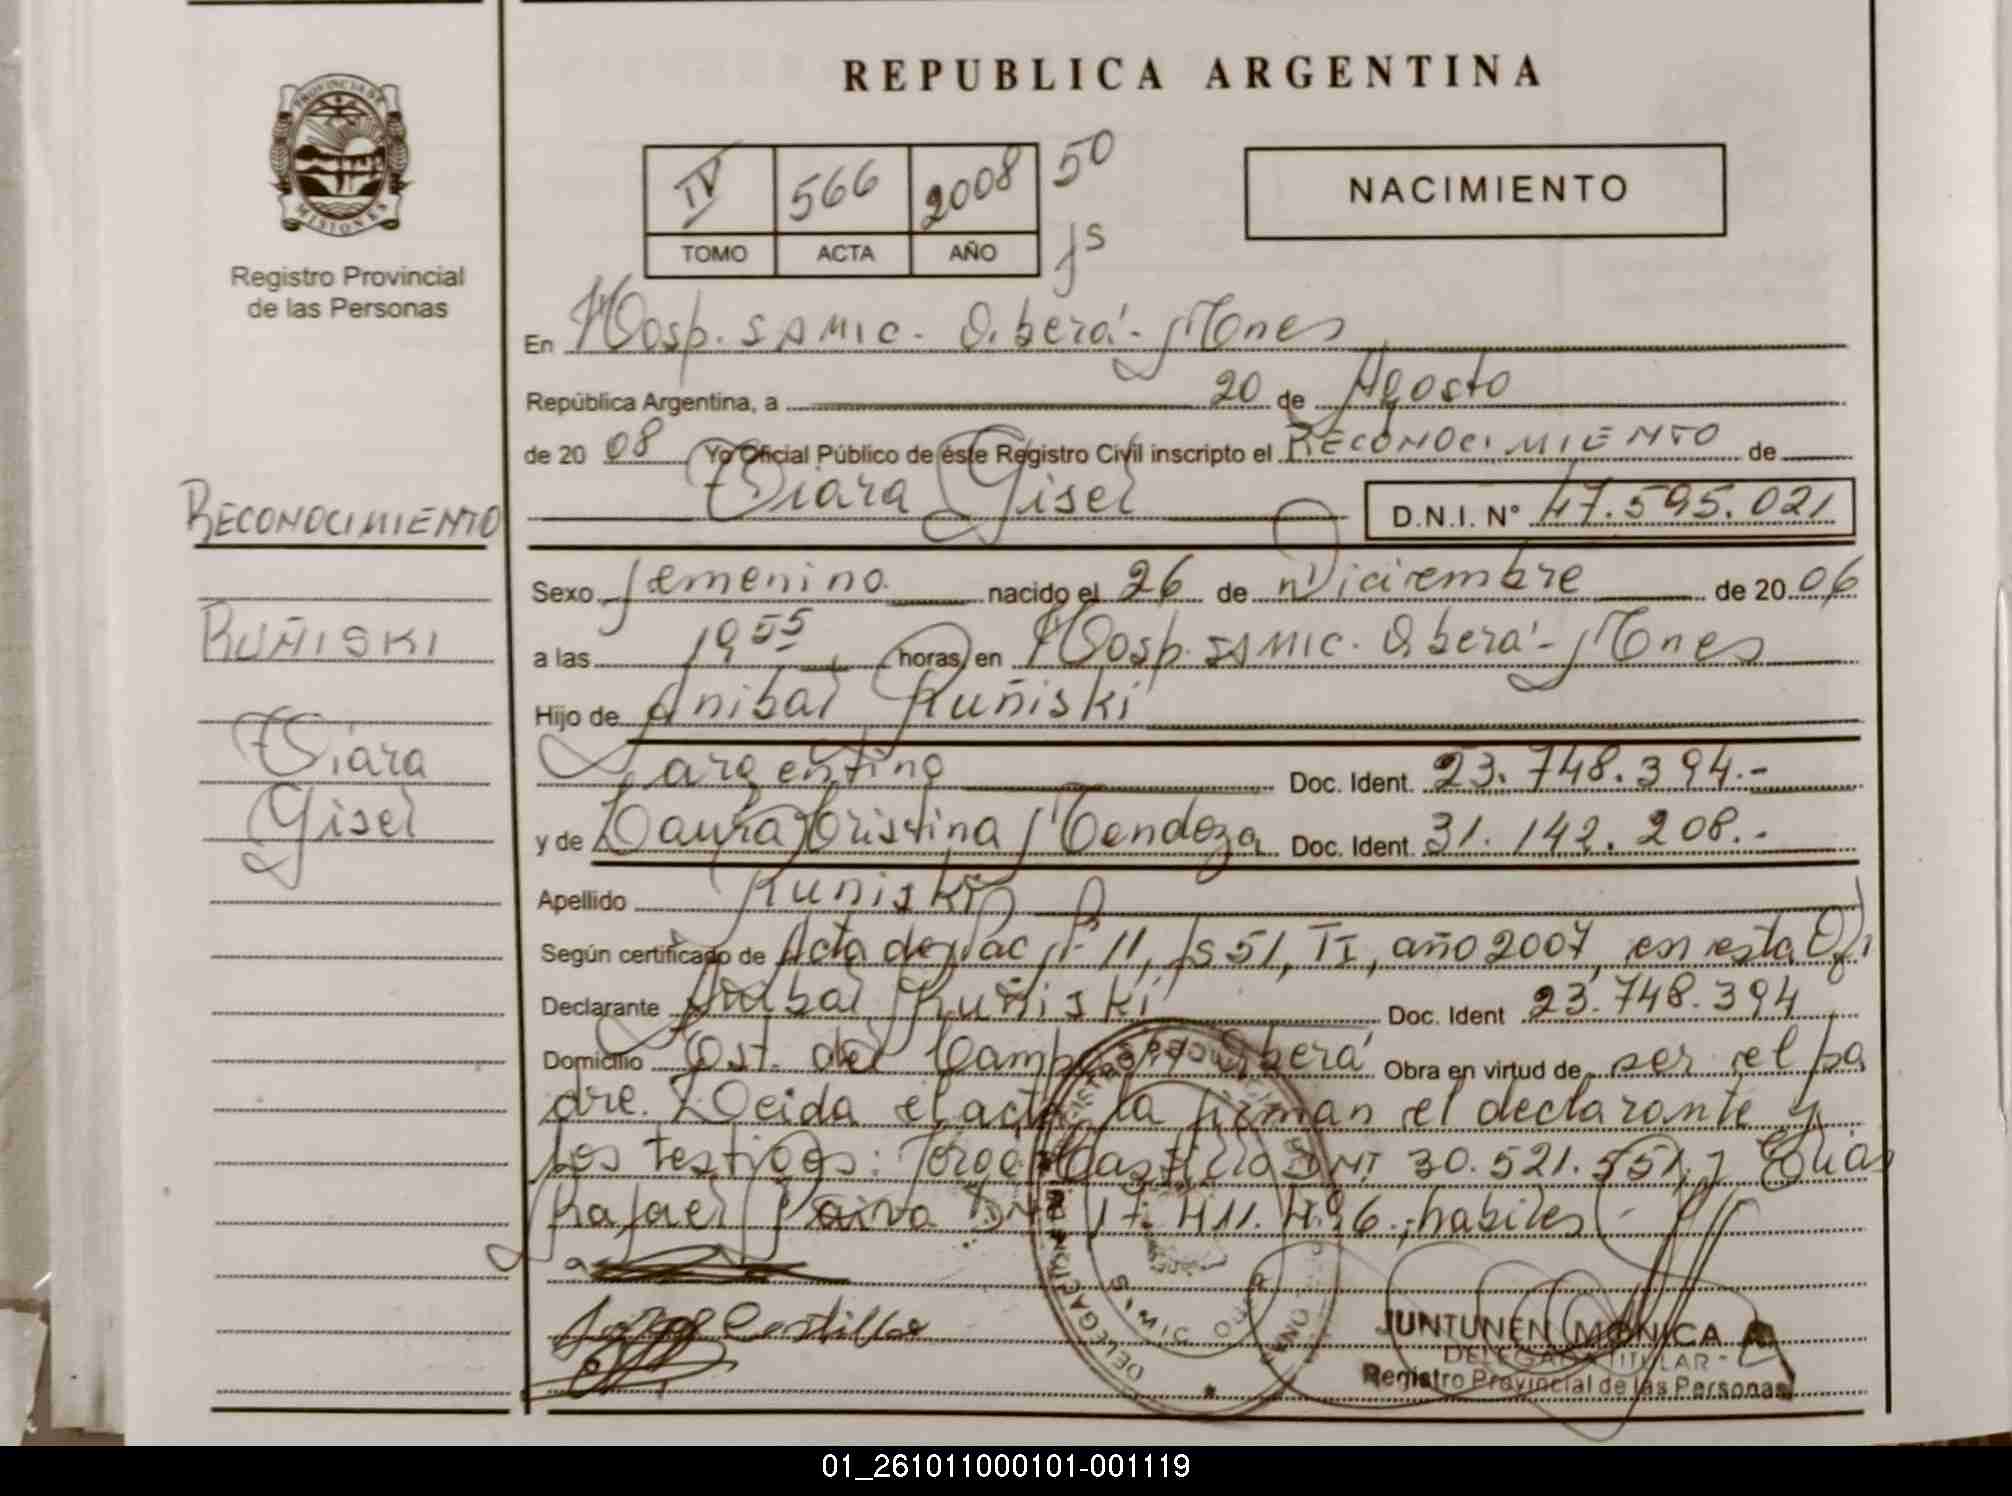 REPUBLICA ARGENTINA
PROVINCIA DE
MISIONES
Registro Provincial
de las Personas
IV 566 2008 50
TOMO ACTA AÑO
fs
NACIMIENTO
En Hosp. SAMIC. Oberá - Mnes
República Argentina, a 20 de Agosto
de 20 08 Yo Oficial Público de éste Registro Civil inscripto el RECONOCIMIENTO de
Gisel D.N.I. N° 47.595.021
RECONOCIMIENTO
Sexo femenino nacido el 26 de Diciembre de 20 06
RUÑISKI
a las 19,55 horas en Hosp. SAMIC. Oberá - Mnes
Hijo de Anibal Ruñiski
argentino Doc. Ident. 23.748.394.-
Gisel
y de Laura Cristina Mendoza Doc. Ident. 31.142.208.-
Apellido Ruñiski
Según certificado de Acta de Nac Nº 11, fs 51, TI, año 2007, en esta Ofi
Declarante Anibal Ruñiski Doc. Ident 23.748.394
Domicilio Oberá Obra en virtud de ser el pa
dre. Leida el acta la firman el declarante y
los testigos: Jorge Castillo DNI 30.521.551, y Elias
Rafael Paiva DNI 17.411.496.; habiles -
Jorge Castillo
JUNTUNEN MONICA
DELEGADA TITULAR -
Registro Provincial de las Personas
01_261011000101-001119